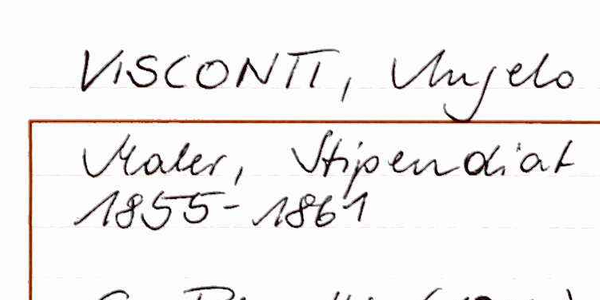 VISCONTI, Angelo
Maler, Stipendiat
1855-1861